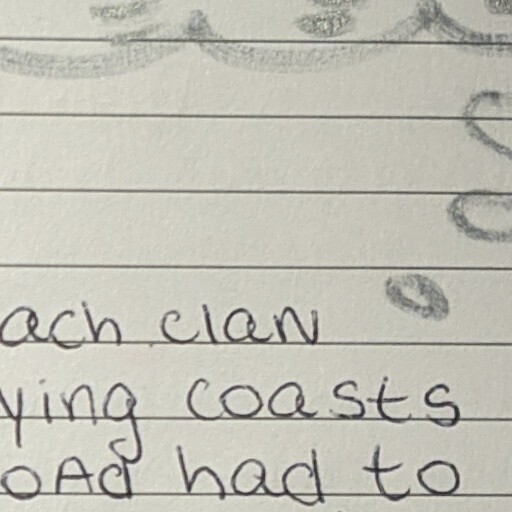 ach clan
ying coasts
oad had to